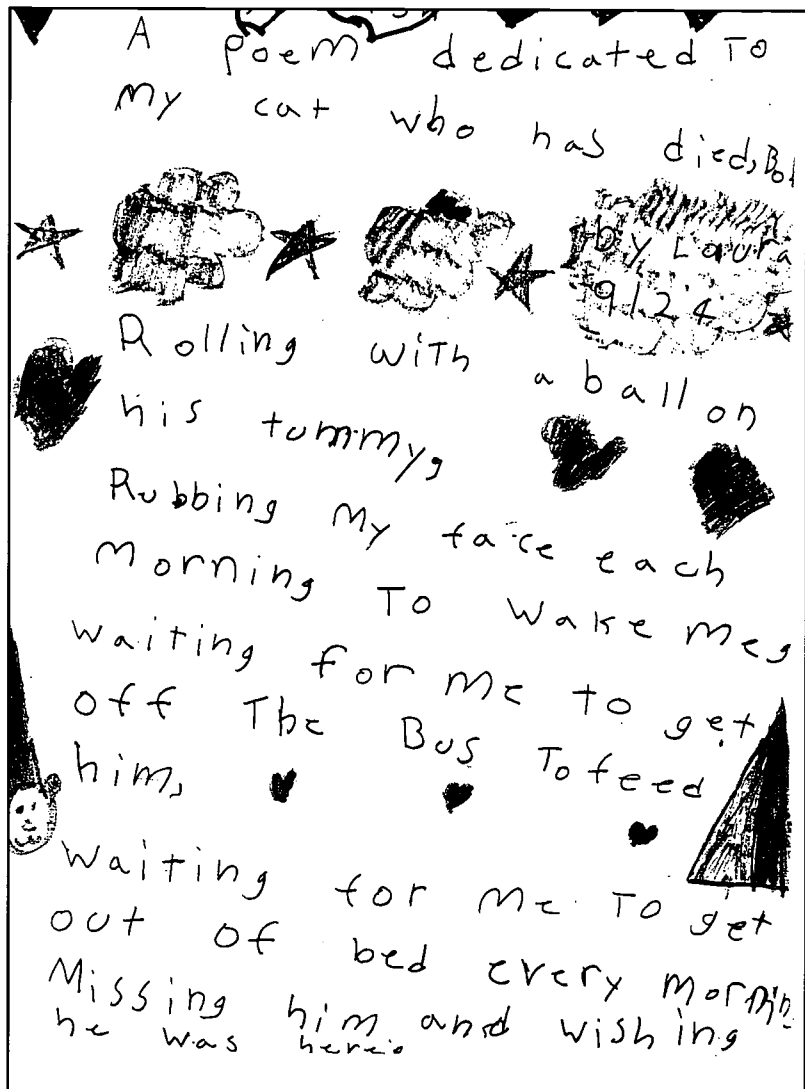 A poem dedicated To
My cat who has died,
by Laura
9.1.24
Rolling with a ball on
his tummy,
Rubbing My face each
Morning To wake me,
waiting for me to get
off The Bus To feed
him,
Waiting for me To get
out of bed every
Missing him and wishing
he was here.